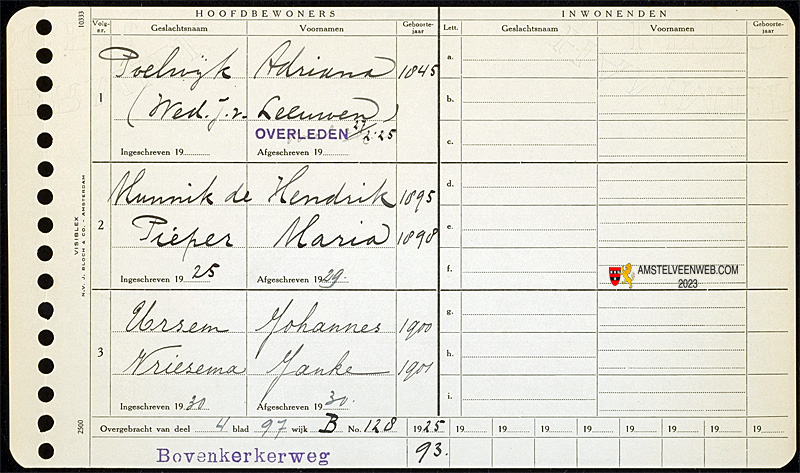 HOOFDBEWONERS INWONENDEN
Volg-nr. Geslachtsnaam Voornamen Geboorte-jaar Lett. Geslachtsnaam Voornamen Geboorte-jaar
10333
1 Poelwijk Adriana 1845
(Wed. J. v. Leeuwen)
OVERLEDEN 27/2 '25
Ingeschreven 19 Afgeschreven 19
2 Munnik de Hendrik 1895
Pieper Maria 1898
Ingeschreven 1925 Afgeschreven 1929.
3 Ursem Johannes 1900
Vriesema Janke 1901
Ingeschreven 1930 Afgeschreven 1930.
a.
b.
c.
d.
e.
f.
g.
h.
i.
AMSTELVEENWEB.COM
2023
VISIBLEX
N.V. J. BLOCH & CO. - AMSTERDAM
2500
Overgebracht van deel 4 blad 97 wijk B No. 128 1925 19 19 19 19 19 19 19 19
Bovenkerkerweg 93.